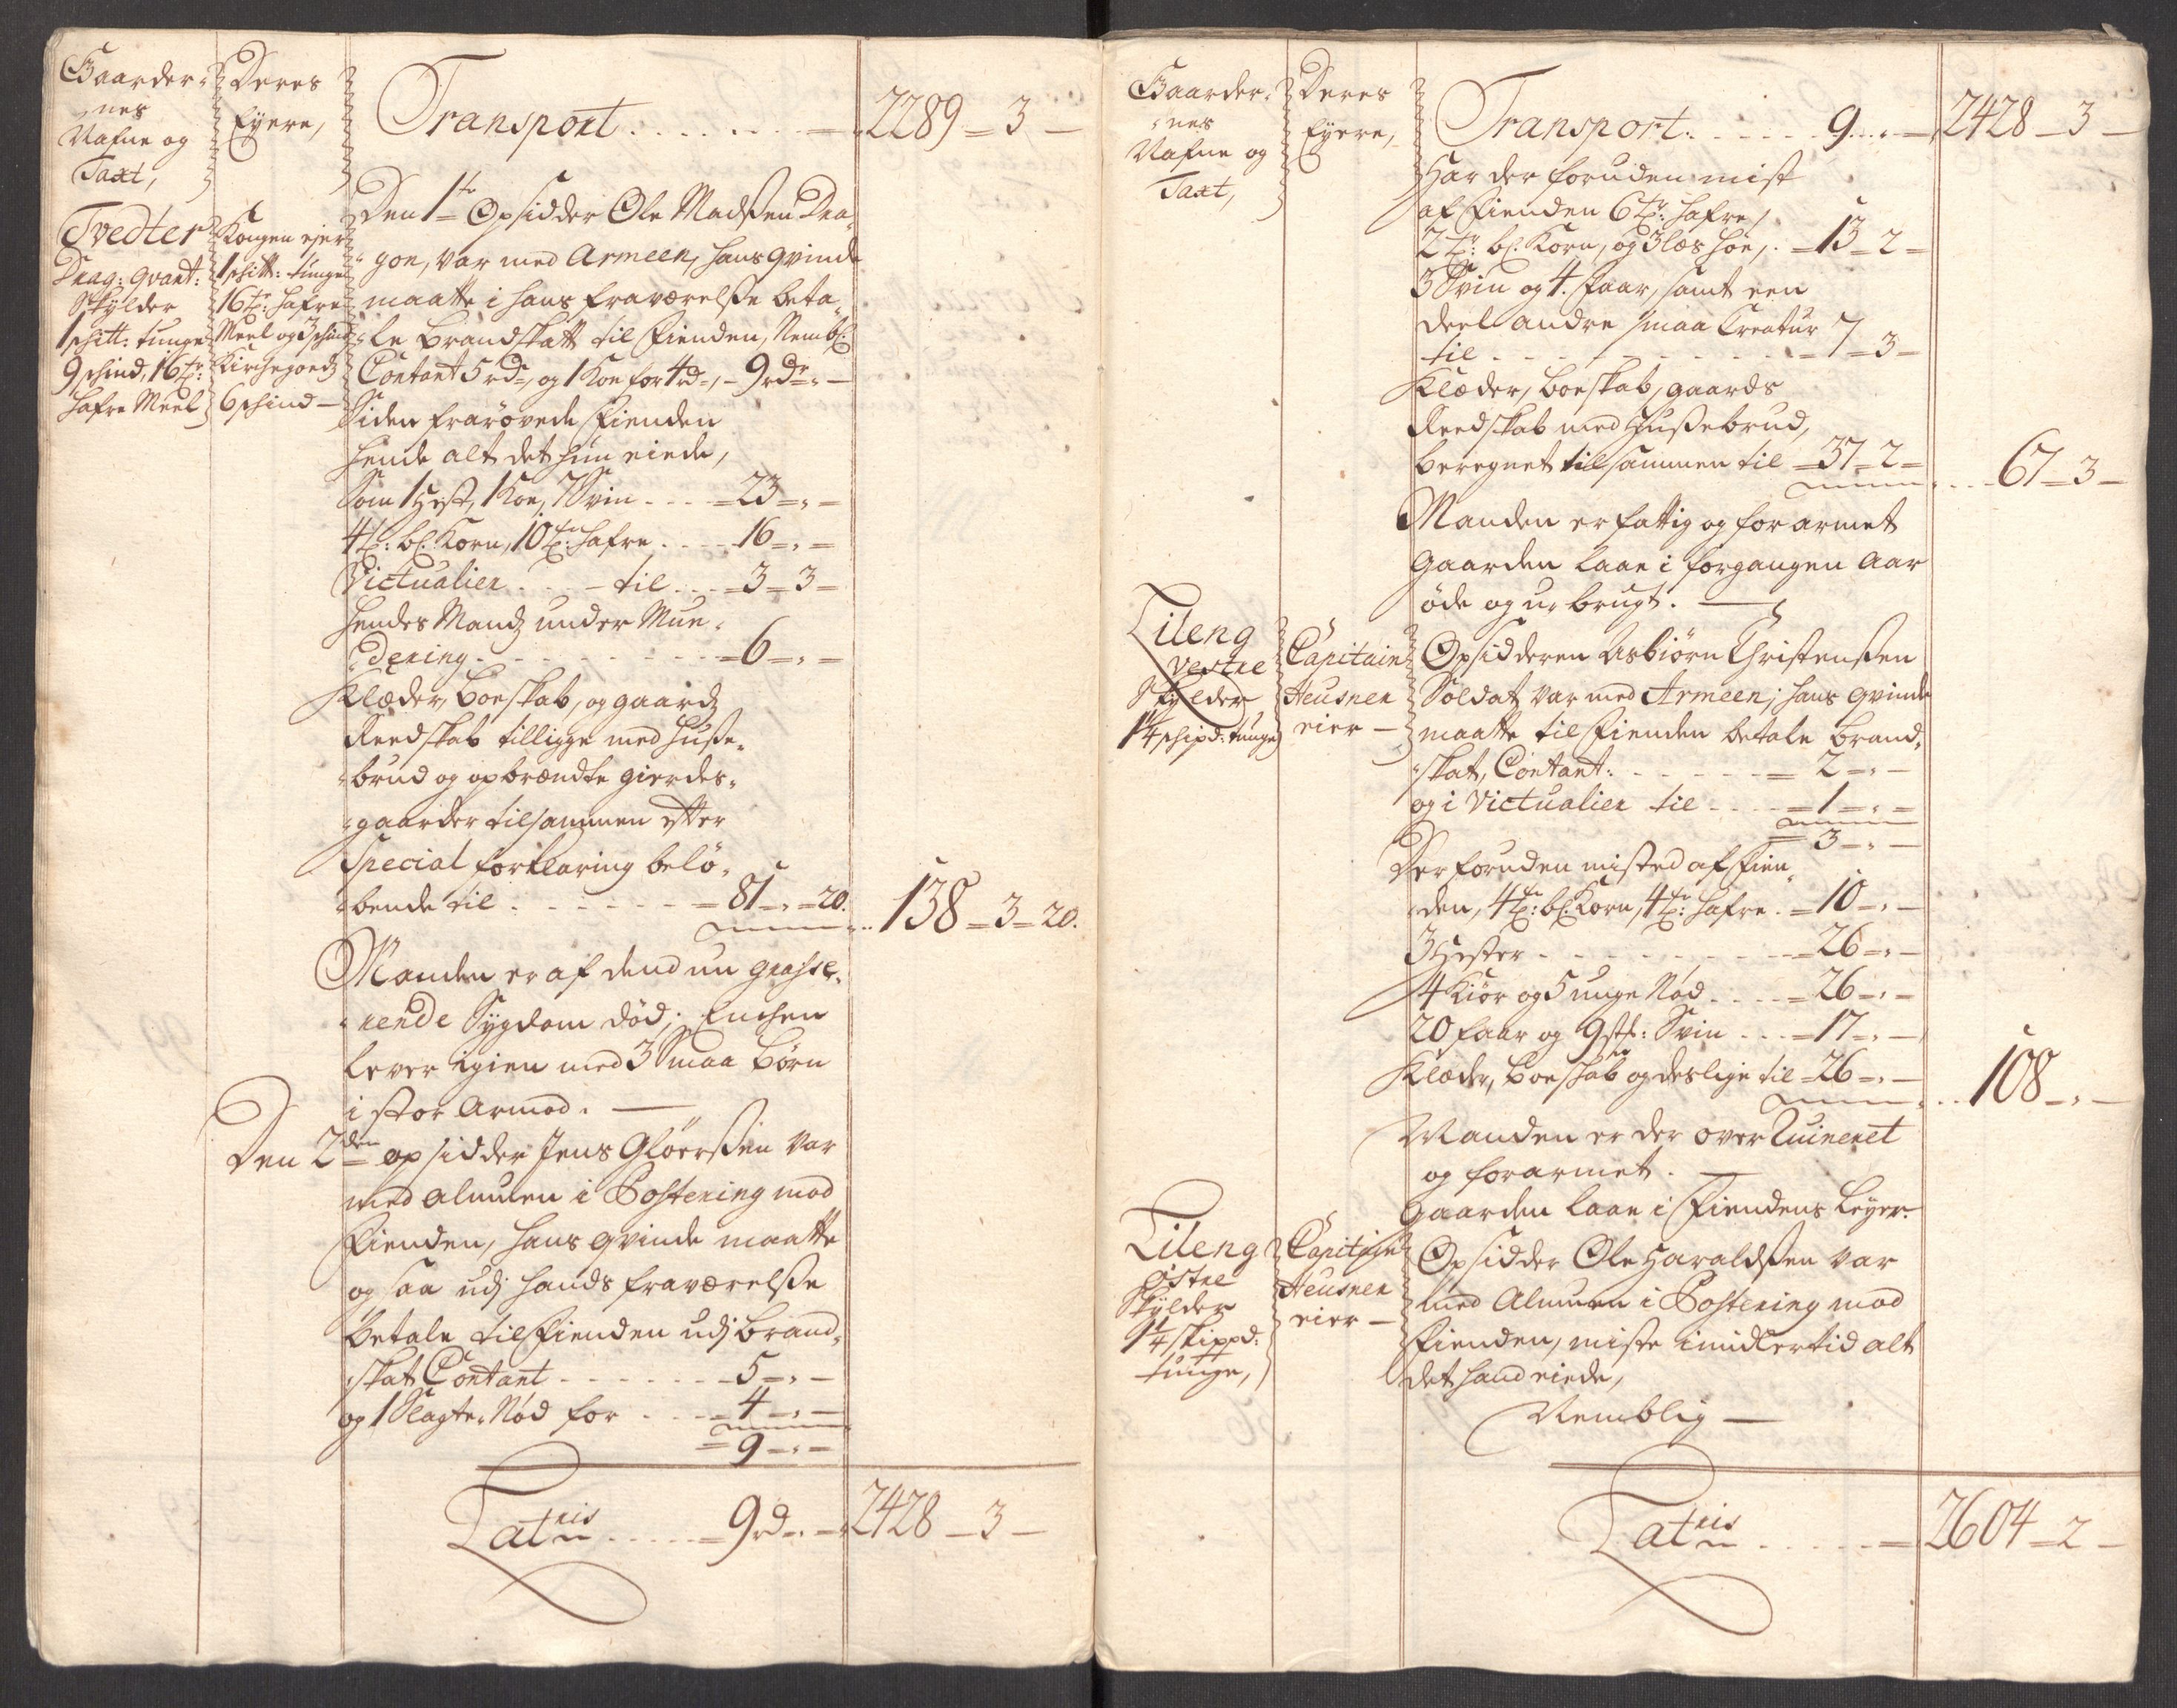 Gaarder-
nes
Nafne og
Taxt,
Deres
Eyere,
Transport . . . . . . . . = 2289 = 3 —
Tvedter
Drag: qvart:
Skylder
1 schitt: tunge
9 schind, 16 tr:
Hafre Meel
Kongen ejer
1 schitt: tunge
16 tr: Hafre
Meel og 3 schind
Kirchegoedz
6 schind —
Den 1te Opsidder Ole Madssen Dra-
gon, var med Armeen, hans qvinde
maatte i hans fraværelsse beta-
le brandskatt til Fienden, Nembl:
Contant 5 rdr, og 1 Koe for 4 rd, - 9 rdr „ —
Siden frarøvede Fienden
hende alt det hun eiede,
Som 1 Hest, 1 Koe, 7 Svin . . . = 23 = „ =
4 tr: bl: Korn, 10 tr: Hafre . . . . 16 = „ =
Victualier . . . - til . . . = 3 = 3 =
hendes Mandz under Mun-
dering . . . . . . . . = 6 = „ =
Klæder, boeskab, og gaardz
Reedskab tilligge med Husse-
brud og opbrændte gierdes-
gaarder tilsammen efter
Special forklaring belø-
bende til . . . . . . . = 81 = „ = 20. 138 = 3 = 20.
Manden er af dend nu grasse-
rende Sygdom død; Enchen
lever igien med 3 Smaa børn
i stor Armod. —
Den 2den opsidder Jens Gløerssen var
med almuen i Postering mod
Fienden, hans qvinde maatte
og saa udj hands fraværelsse
betale til Fienden udj brand-
skat Contant . . . . . . - 5 = „ —
og 1 Slagte-Nød for . . . = 4 = „ —
= 9 = „ —
Lateris . . . . . = 9 rd „ — 2428 — 3 —
Gaarder-
nes
Nafne og
Taxt,
Deres
Eyere,
Transport . . . . . 9 . „ — 2428 — 3 —
Har der foruden mist
af Fienden 6 tr: Hafre,
2 tr: bl: Korn, og 3 læs høe, . = 13 = 2 =
3 Svin og 4. Faar, samt een
deel andre smaa Creatur
til . . . . . . . . . . = 7 = 3 —
Klæder, boeskab, gaards
Reedskab med Hussebrud,
beregnet tilsammen til = 37 = 2 = . . . 67 = 3 —
Manden er fattig og forarmet
Gaarden laae i forgangen Aar
øde og u-brugt. —
Lileng
Vestre
Skylder
1¼ schipd: tunge
Capitain
Heusner
eier —
Opsidderen Asbiørn Christenssen
Soldat var med Armeen; hans qvinde
maatte til Fienden betale brand-
skat, Contant . . . . . . = 2 = „ —
og i Victualier til . . . . = 1 = „ =
= 3 = „ —
Der foruden misted af Fien-
den, 4 tr: bl: Korn, 4 tr: Hafre . = 10 = „ —
3 Hester . . . . . . . . = 26 = „ —
4 Kiør og 5 unge Nød . . . = 26 = „ =
20 faar og 9 stk: Svin . . . = 17 = „ —
Klæder, boeskab og deslige til = 26 = „ — . . 108 = „ —
Manden er der over Ruineret
og forarmet. —
Gaarden laae i Fiendens Leyer.
Lileng
Østre
Skylder
1¼ skippd:
tunge,
Capitain
Heusner
eier —
Opsidder Ole Haraldssen var
med Almuen i Postering mod
Fienden, miste imidlertid alt
det hand eiede,
Nemblig —
Lateris . . . . . = 2604 = 2 —